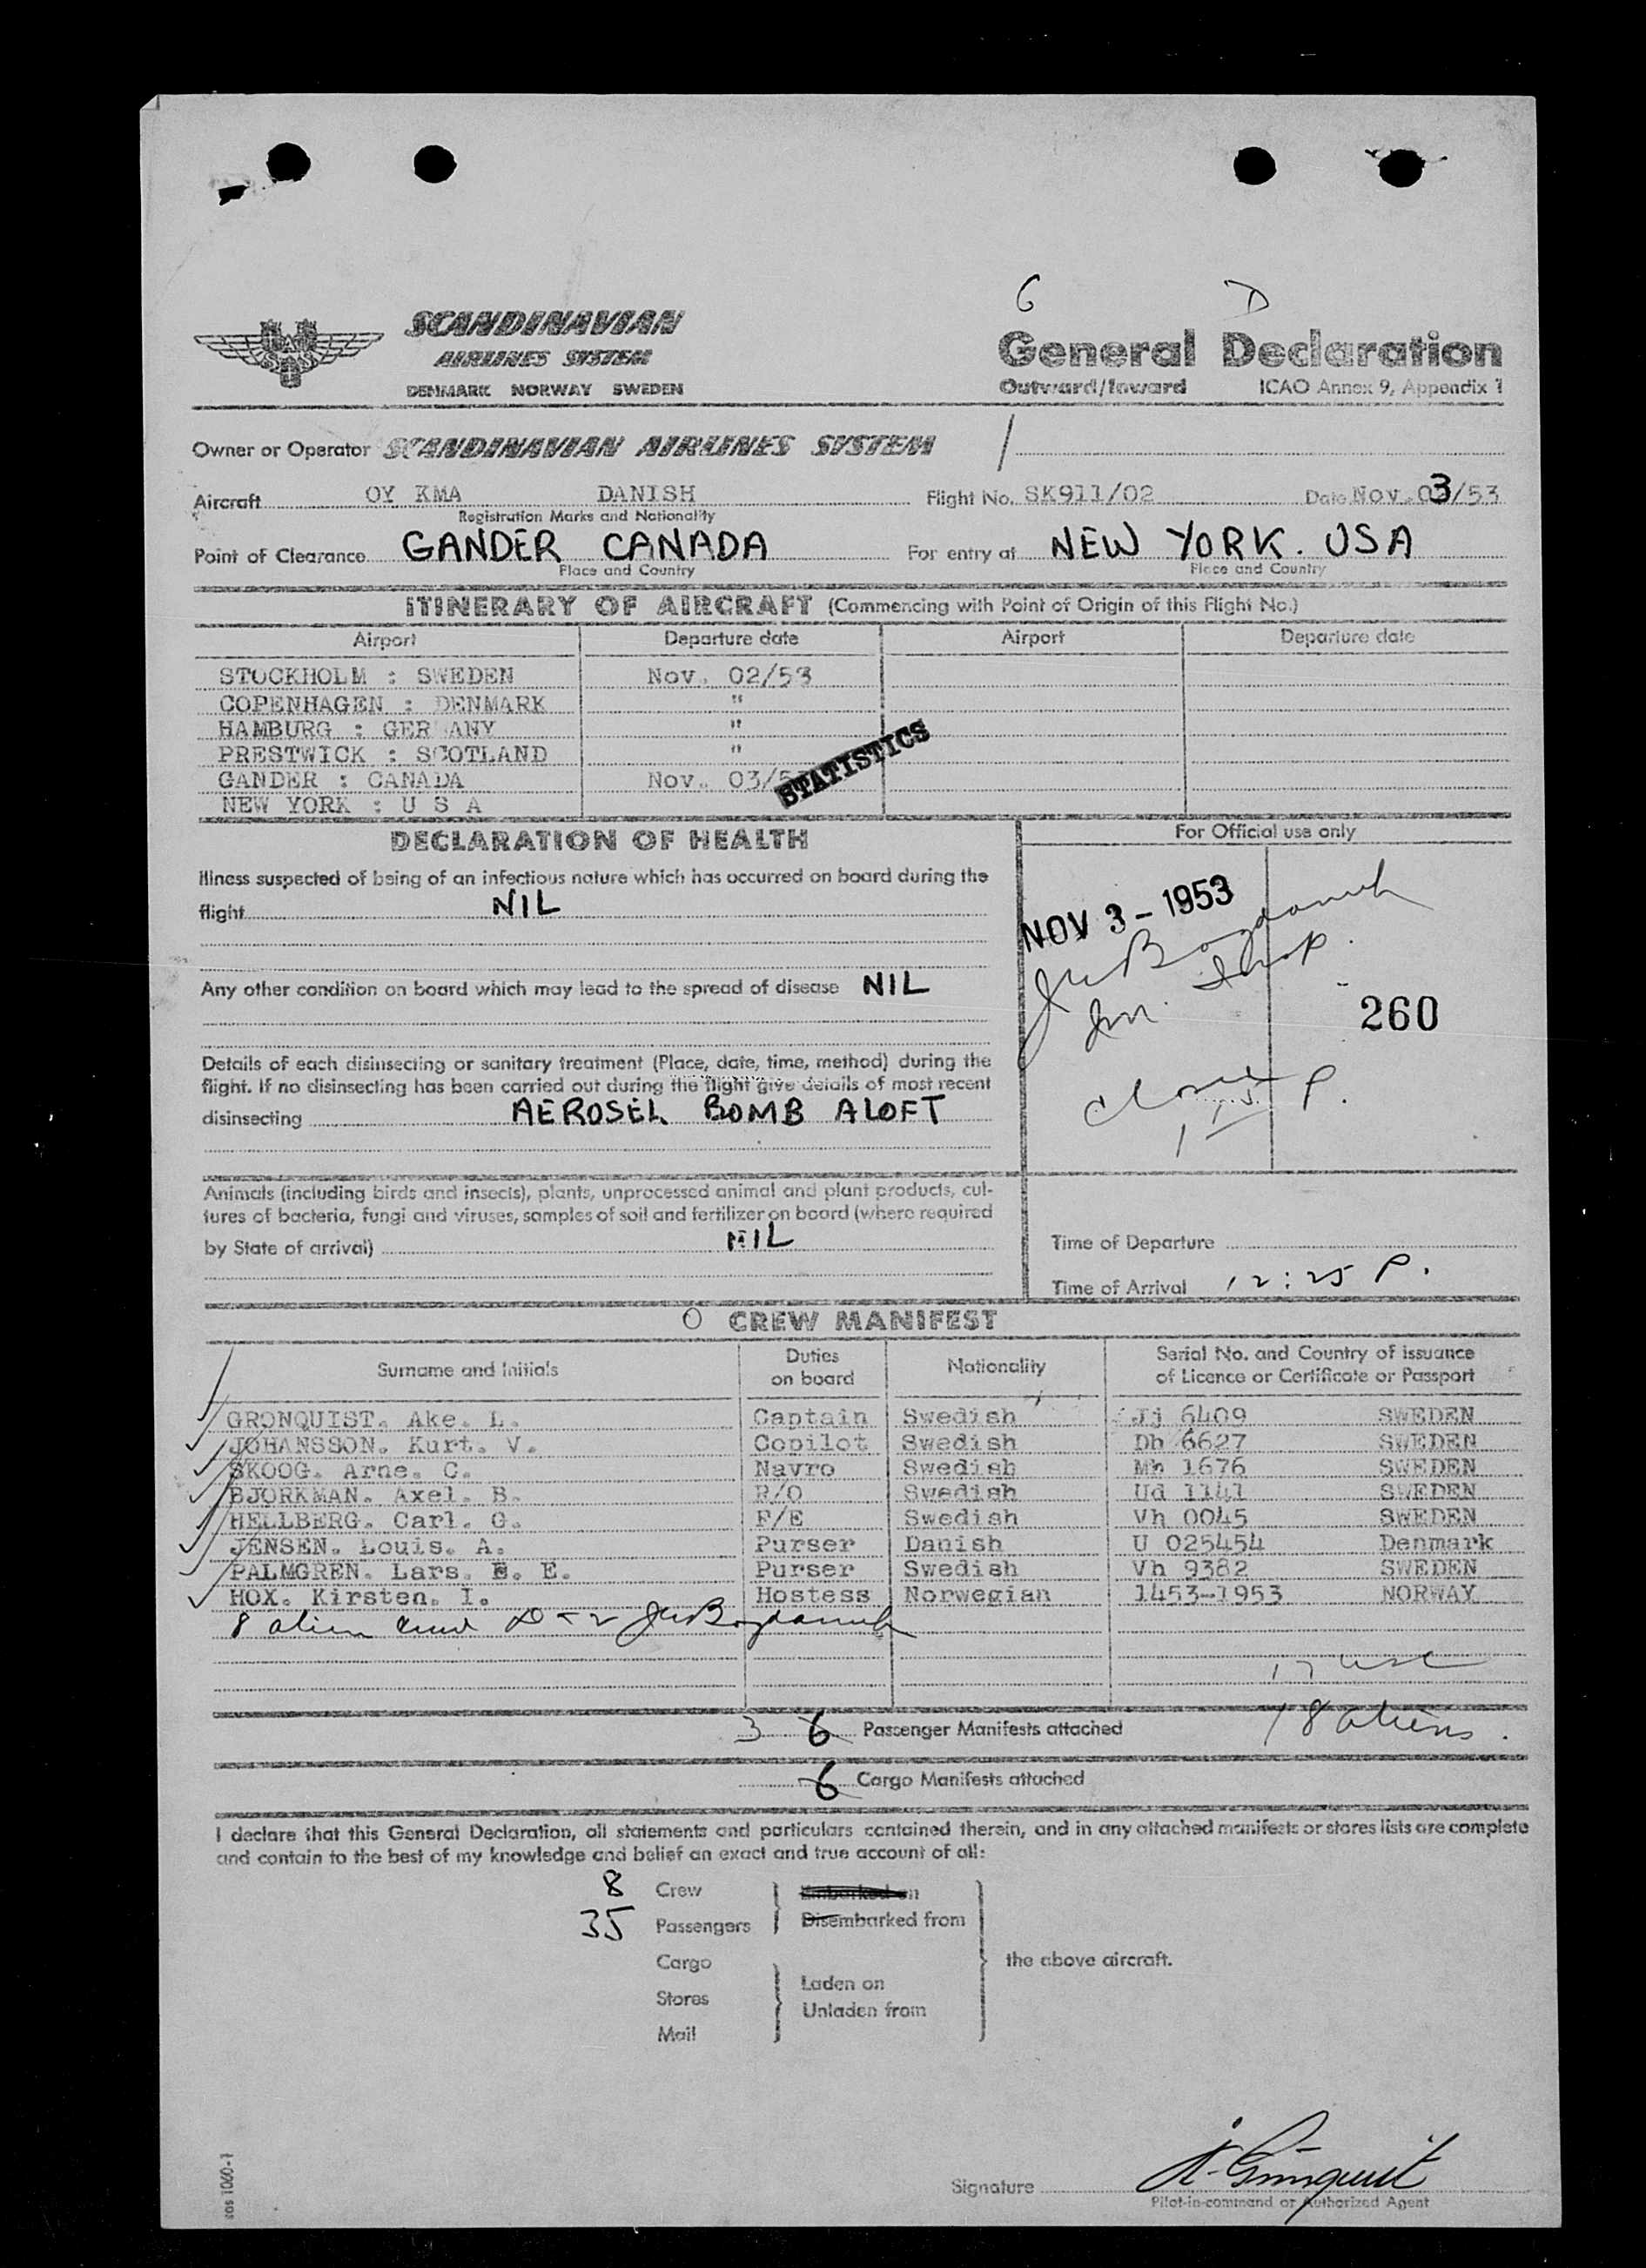 G D
SCANDINAVIAN
AIRLINES SYSTEM
DENMARK NORWAY SWEDEN
General Declaration
Outward/Inward ICAO Annex 9, Appendix 1
Owner or Operator SCANDINAVIAN AIRLINES SYSTEM
Aircraft OY KMA DANISH Flight No. SK911/02 Date Nov. 03/53
Registration Marks and Nationality
Point of Clearance GANDER CANADA For entry at NEW YORK. USA
Place and Country Place and Country
ITINERARY OF AIRCRAFT (Commencing with Point of Origin of this Flight No.)
Airport Departure date Airport Departure date
STOCKHOLM : SWEDEN Nov. 02/53
COPENHAGEN : DENMARK "
HAMBURG : GER ANY "
PRESTWICK : SCOTLAND "
GANDER : CANADA Nov. 03/5
STATISTICS
NEW YORK : U S A
DECLARATION OF HEALTH
Illness suspected of being of an infectious nature which has occurred on board during the
flight NIL
Any other condition on board which may lead to the spread of disease NIL
Details of each disinsecting or sanitary treatment (Place, date, time, method) during the
flight. If no disinsecting has been carried out during the flight give details of most recent
disinsecting AEROSEL BOMB ALOFT
Animals (including birds and insects), plants, unprocessed animal and plant products, cul-
tures of bacteria, fungi and viruses, samples of soil and fertilizer on board (where required
by State of arrival) NIL
For Official use only
NOV 3 - 1953
260
P.
Time of Departure
Time of Arrival 12:25 P.
O CREW MANIFEST
Surname and Initials Duties on board Nationality Serial No. and Country of issuance
of Licence or Certificate or Passport
GRONQUIST. Ake. L. Captain Swedish Jj 6409 SWEDEN
JOHANSSON. Kurt. V. Copilot Swedish Dh 6627 SWEDEN
SKOOG. Arne. C. Navro Swedish Mh 1676 SWEDEN
BJORKMAN. Axel. B. R/O Swedish Ud 1141 SWEDEN
HELLBERG. Carl. G. F/E Swedish Vh 0045 SWEDEN
JENSEN. Louis. A. Purser Danish U 025454 Denmark
PALMGREN. Lars. E. E. Purser Swedish Vh 9382 SWEDEN
HOX. Kirsten. I. Hostess Norwegian 1453-1953 NORWAY
8 alien crew
17 usc
18 aliens.
3 6 Passenger Manifests attached
6 Cargo Manifests attached
I declare that this General Declaration, all statements and particulars contained therein, and in any attached manifests or stores lists are complete
and contain to the best of my knowledge and belief an exact and true account of all:
8 Crew Embarked on
35 Passengers Disembarked from
Cargo the above aircraft.
Stores Laden on
Mail Unladen from
Signature A. Grönquist
Pilot-in-command or Authorized Agent
sas 1060-1